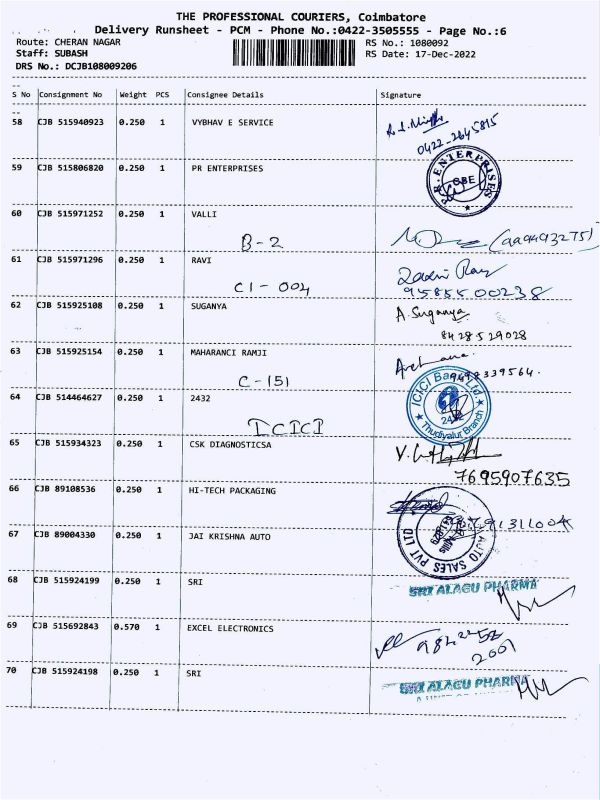 THE PROFESSIONAL COURIERS, Coimbatore
Delivery Runsheet - PCM - Phone No.:0422-3505555 - Page No.:6
Route: CHERAN NAGAR RS No.: 1080092
Staff: SUBASH RS Date: 17-Dec-2022
DRS No.: DCJB108009206
S No Consignment No Weight PCS Consignee Details Signature
58 CJB 515940923 0.250 1 VYBHAV E SERVICE
0422-2645815
59 CJB 515806820 0.250 1 PR ENTERPRISES
P.R. ENTERPRISES
CBE
60 CJB 515971252 0.250 1 VALLI
B-2
61 CJB 515971296 0.250 1 RAVI
C1-004 9585500238
62 CJB 515925108 0.250 1 SUGANYA A. Suganya
8428529028
63 CJB 515925154 0.250 1 MAHARANCI RAMJI Archana
C-151
64 CJB 514464627 0.250 1 2432
ICICI Bank Ltd.
2432
Thudiyalur Branch
ICICI
65 CJB 515934323 0.250 1 CSK DIAGNOSTICSA
7695907635
66 CJB 89108536 0.250 1 HI-TECH PACKAGING
67 CJB 89004330 0.250 1 JAI KRISHNA AUTO
AUTO SALES PVT LTD
68 CJB 515924199 0.250 1 SRI
SRI ALAGU PHARMA
69 CJB 515692843 0.570 1 EXCEL ELECTRONICS
2001
70 CJB 515924198 0.250 1 SRI
SRI ALAGU PHARMA